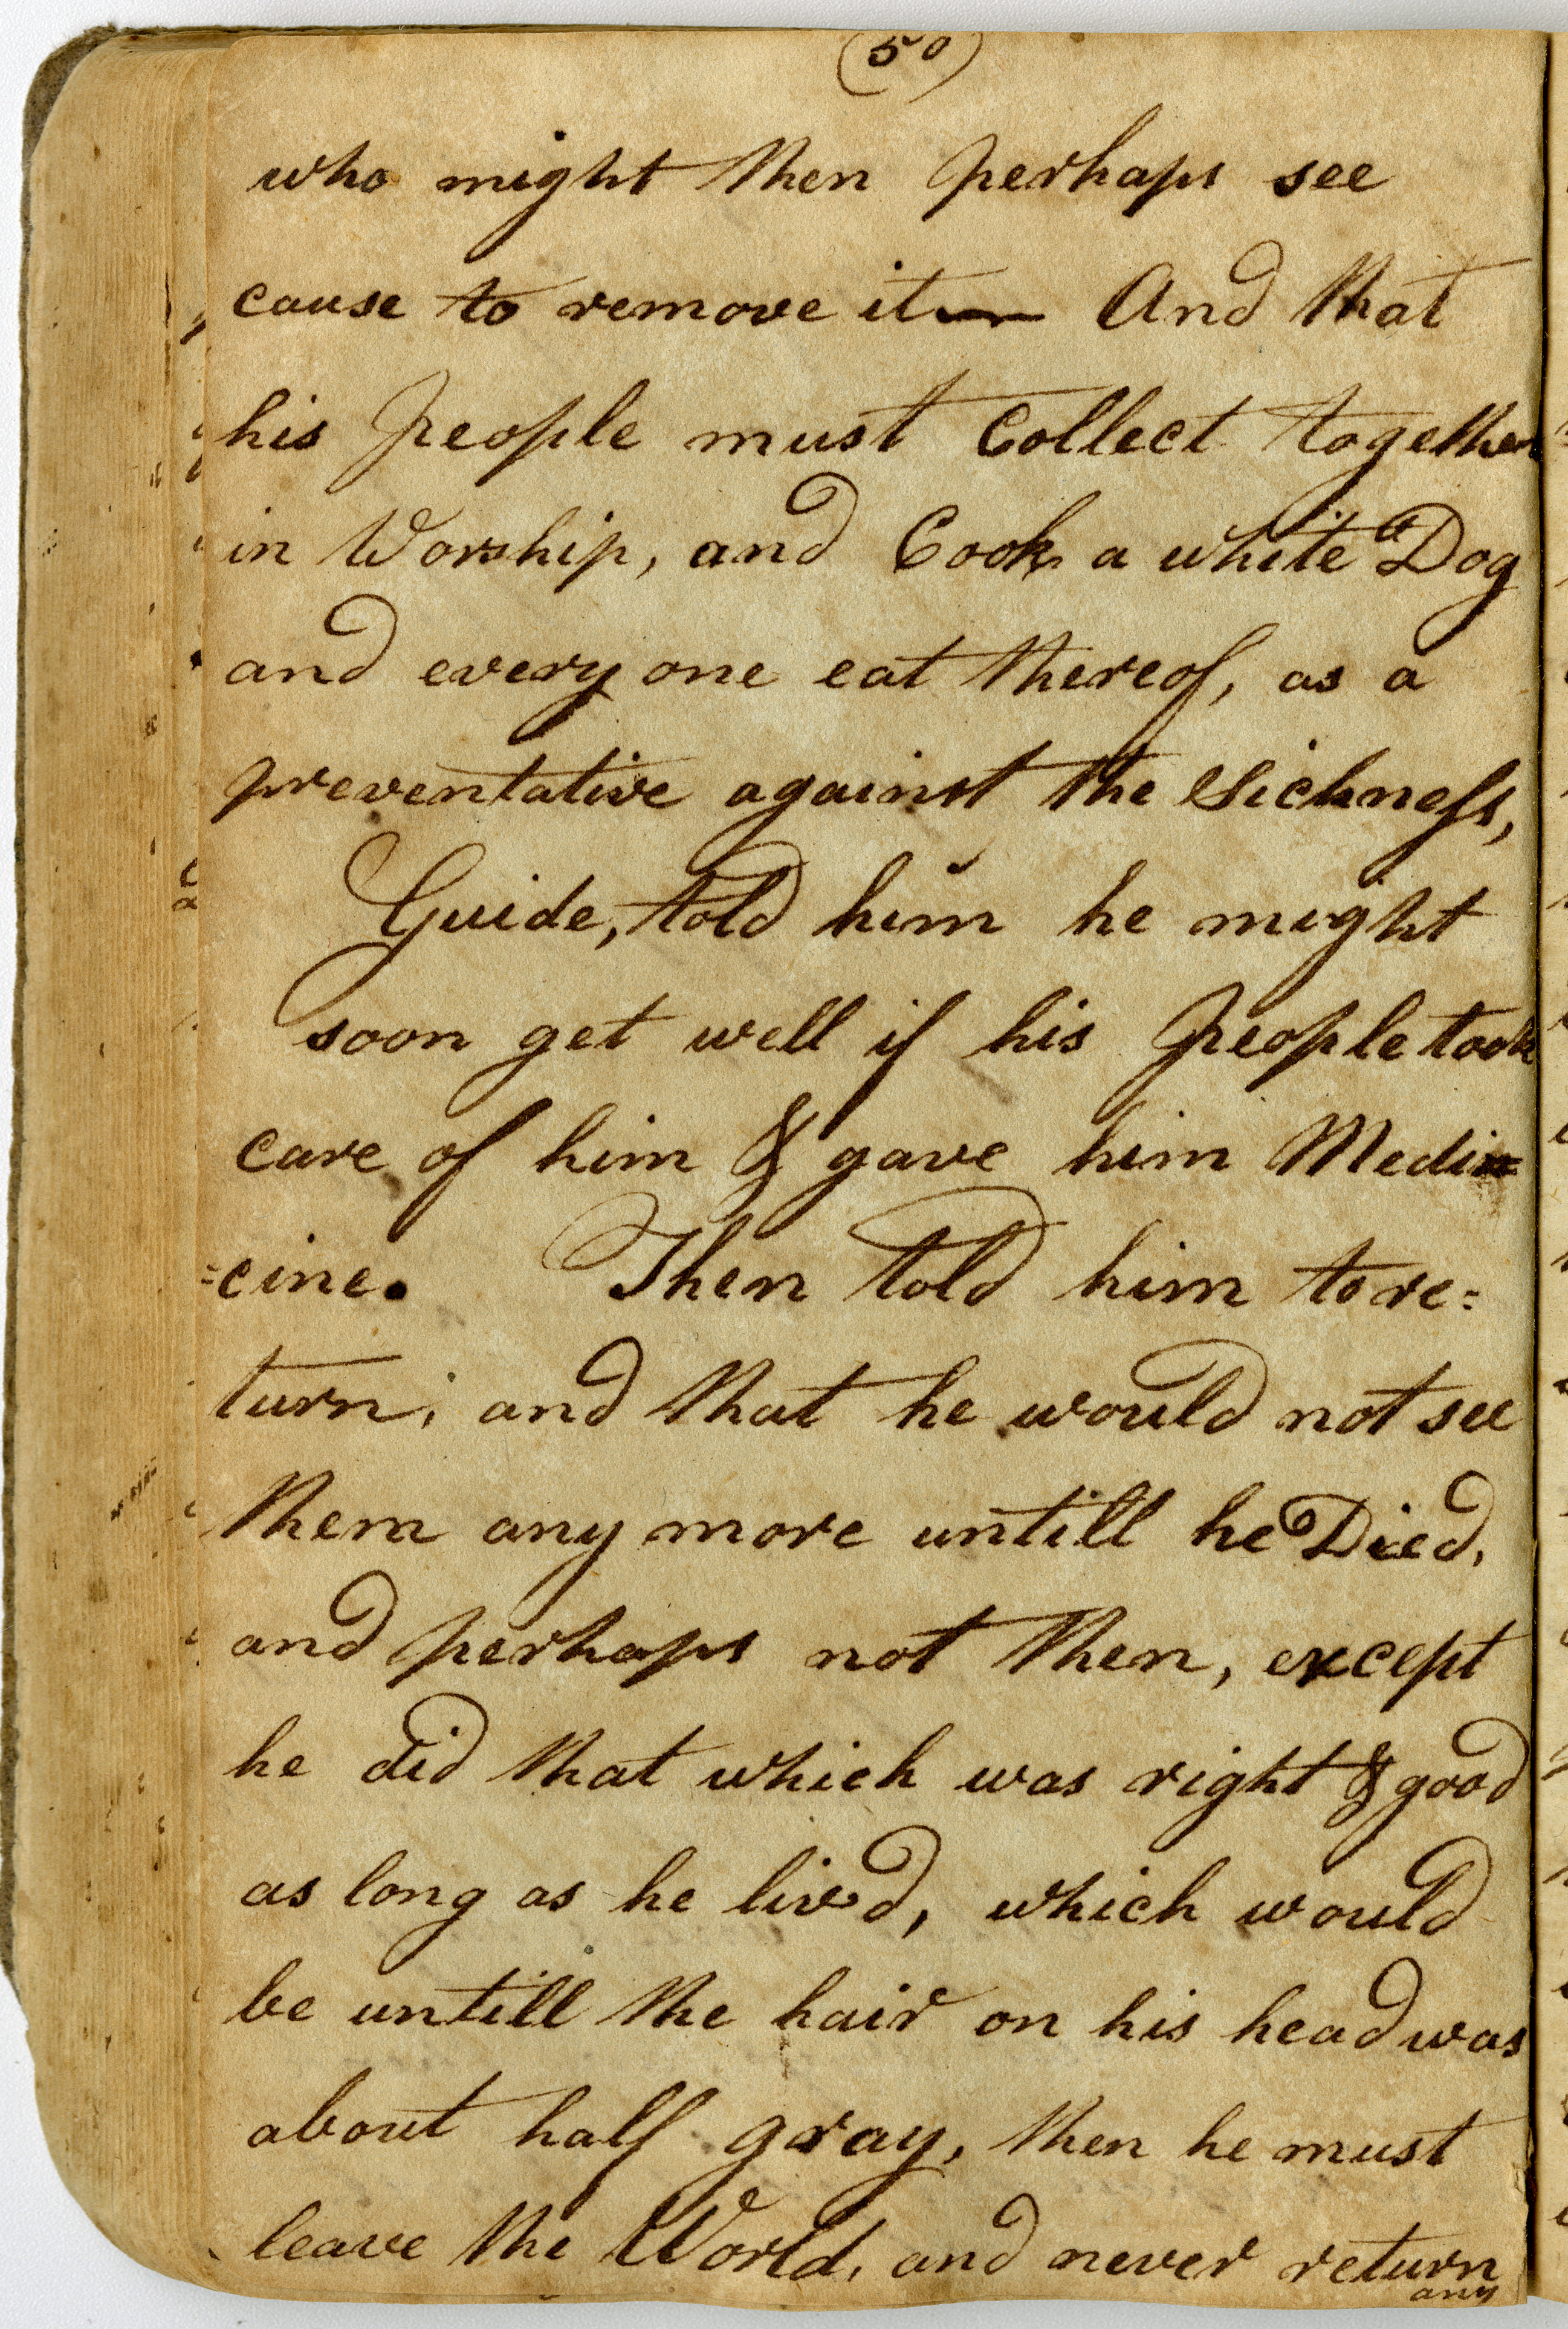 (50)
who might then perhaps see
cause to remove it — And that
his People must Collect together
in Worship, and Cook a white Dog
and every one eat thereof, as a
preventative against the Sickness,
Guide, told him he might
soon get well if his People took
care of him & gave him Medi=
=cine. Then told him to re=
turn, and that he would not see
them any more untill he Died,
and perhaps not then, except
he did that which was right & good
as long as he liv'd, which would
be untill the hair on his head was
about half gray, then he must
leave the World, and never return
any